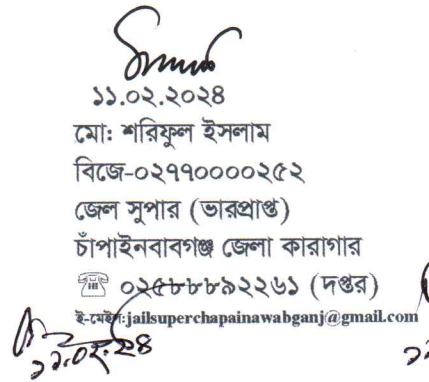 ১১.০২.২০২৪
মো: শরিফুল ইসলাম
বিজে-০২৭৭০০০০২৫২
জেল সুপার (ভারপ্রাপ্ত)
চাঁপাইনবাবগঞ্জ জেলা কারাগার
☎ ০২৫৮৮৮৯২২৬১ (দপ্তর)
ই-মেইল:jailsuperchapainawabganj@gmail.com
১১.০২.২৪